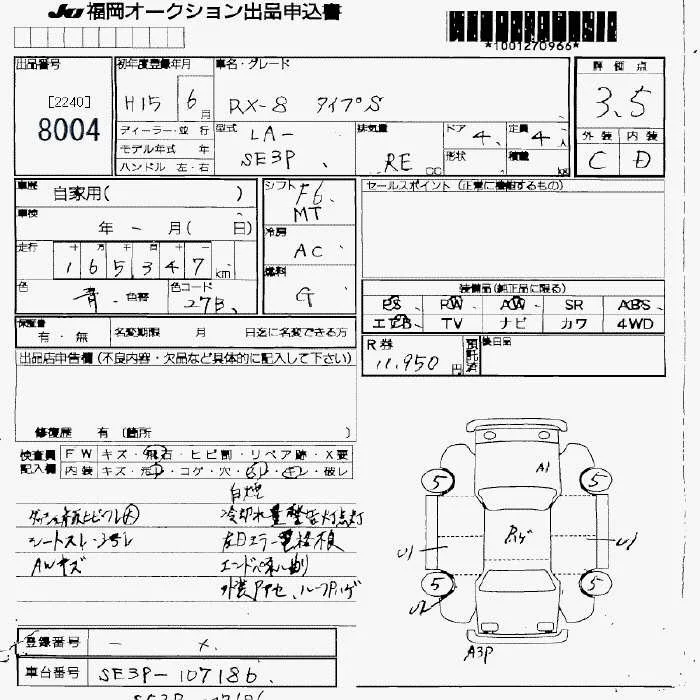 JU 福岡オークション出品申込書
*1001270966*
出品番号 初年度登録年月 車名・グレード 評価点
[2240]
8004
H15 6月 RX-8 タイプS 3.5
外装 内装
C D
ディーラー・並行 型式 LA- 排気量 ドア 4 定員 4人
モデル年式 年 SE3P RE cc 形状 積載 kg
ハンドル 左・右
車歴 自家用( ) シフト F6 MT セールスポイント (正常に機能するもの)
車検 年 - 月( 日) 冷房 AC
走行 165,347km 燃料 G
色 青 色替 色コード 27B
装備品(純正品に限る)
PS PW AW SR ABS
エアB TV ナビ カワ 4WD
保証書 有・無 名変期限 月 日迄に名変できる方
R券 11,950円 預託済 後日品
出品店申告欄(不良内容・欠品など具体的に記入して下さい)
修復歴 有 (箇所 )
検査員 FW キズ・飛石・ヒビ割・リペア跡・X要
記入欄 内装 キズ・汚レ・コゲ・穴・ビレ・キレ・破レ
白煙
冷却水量警告灯点灯
シートスレ・汚レ 左目エラー電格不良
AWキズ エンドパネル曲り
A1
5 5
U1 U1
5 5
U2
A3P
登録番号 - x
車台番号 SE3P-107186